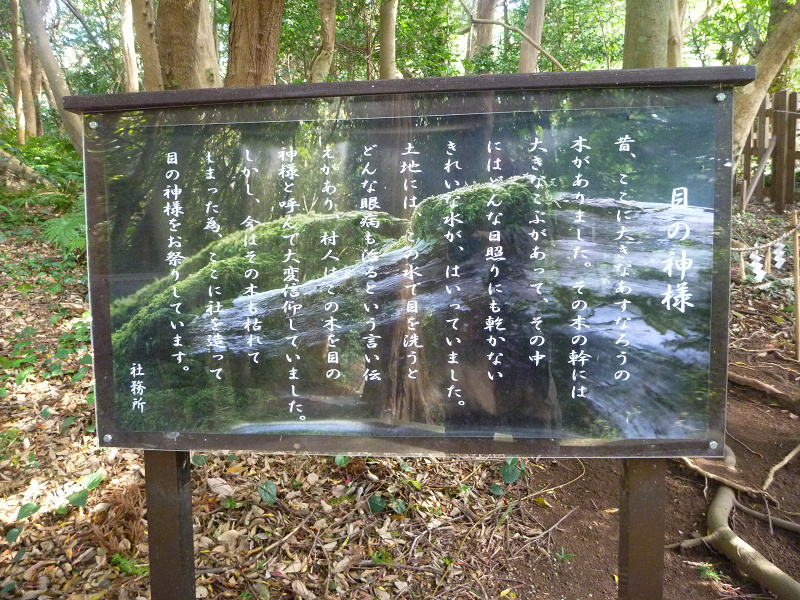 目の神様
昔、ここに大きなあすなろうの
木がありました。その木の幹には
大きなこぶがあって、その中
にはどんな日照りにも乾かない
きれいな水が、はいっていました。
土地には、この水で目を洗うと
どんな眼病も治るという言い伝
えがあり、村人はこの木を目の
神様と呼んで大変信仰していました。
しかし、今はその木も枯れて
しまった為、ここに社を造って
目の神様をお祭りしています。
社務所